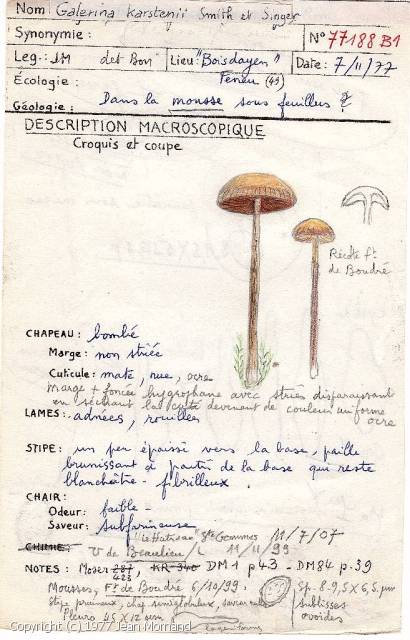 Nom Galerina karstenii Smith et Singer
Synonymie : N° 77188 B1
Leg.: JM det Bon Lieu "Boisdayen" Date : 7/11/77
Écologie : Feneu (49)
Géologie : Dans la mousse sous feuillus ?
DESCRIPTION MACROSCOPIQUE
Croquis et coupe
Récolte ft
de Boudré
CHAPEAU : bombé
Marge : non striée
Cuticule : mate, nue, ocre
Marge + foncée hygrophane avec stries disparaissant
en séchant la cuticule devenant de couleur uniforme
ocre
LAMES : adnées, rouillées
STIPE : un peu épaissi vers la base, paille
brunissant à partir de la base qui reste
blanchâtre - fibrilleux.
CHAIR :
Odeur : faible -
Saveur : subfarineuse
Ste Gemmes 11/7/07
CHIMIE : V de Beaulieu/L 11/11/99
NOTES : Moser 287 KR 340 DM1 p43 - DM84 p.39
423
Mousses, Ft de Boudré 6/10/99. Sp. 8-9,5 x 6,5 µm
sublisses
ovoïdes
Pleuro 45 x 12 µm
Copyright (c) 1977 Jean Mornand